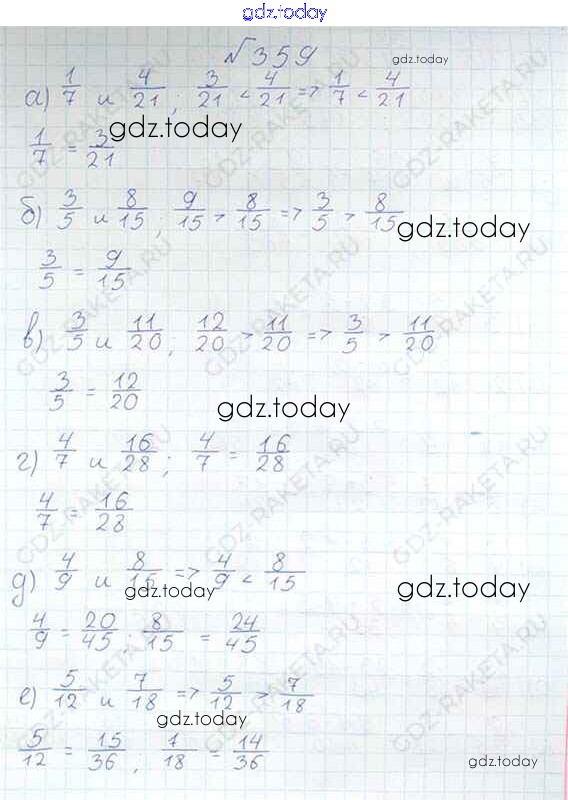 gdz.today
№359
gdz.today
а) 1/7 и 4/21; 3/21 < 4/21 => 1/7 < 4/21
gdz.today
1/7 = 3/21
б) 3/5 и 8/15; 9/15 > 8/15 => 3/5 > 8/15
gdz.today
3/5 = 9/15
в) 3/5 и 11/20; 12/20 > 11/20 => 3/5 > 11/20
3/5 = 12/20
gdz.today
г) 4/7 и 16/28; 4/7 = 16/28
4/7 = 16/28
д) 4/9 и 8/15 => 4/9 < 8/15
gdz.today
gdz.today
4/9 = 20/45; 8/15 = 24/45
е) 5/12 и 7/18 => 5/12 > 7/18
gdz.today
5/12 = 15/36, 7/18 = 14/36
gdz.today
GDZ-RAKETA.RU